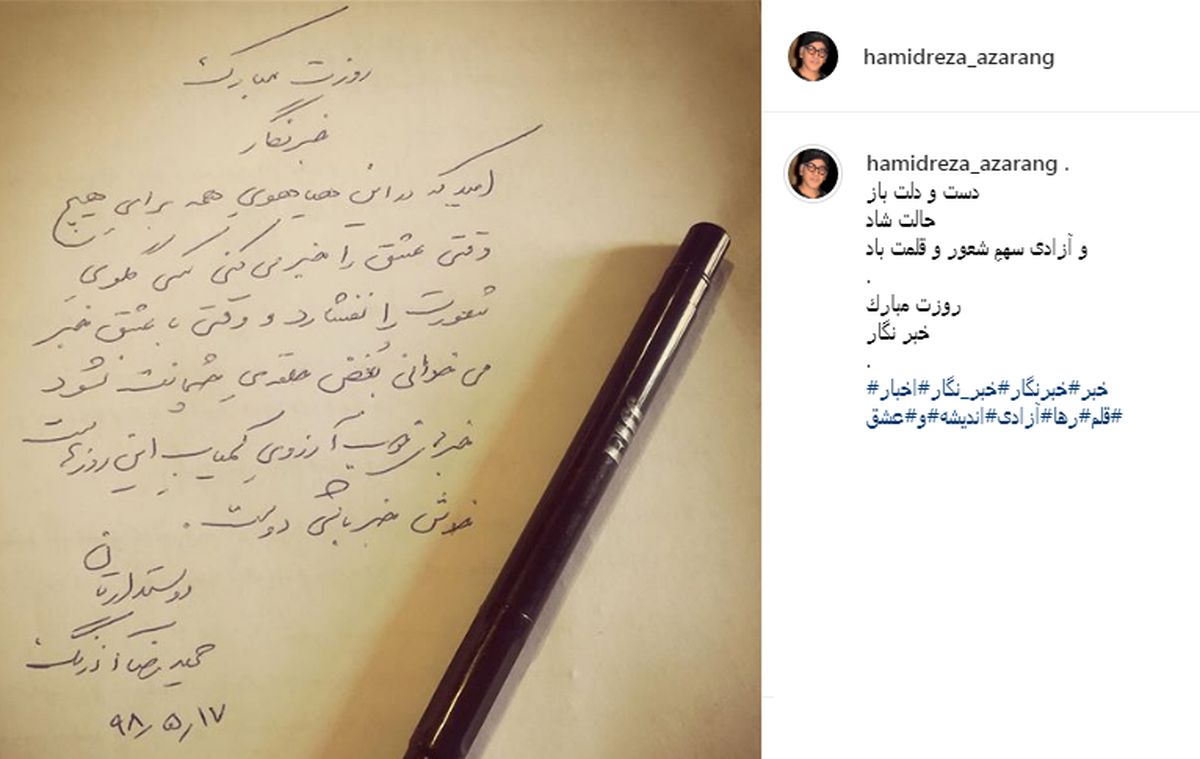 روزت مبارک
خبرنگار
امید که در این هیاهویِ همه برایِ هیچ
وقتی عشق را خبر می کنی کسی گلویِ
شعورت را نفشارد و وقتی با عشق خبر
می خوانی بُغض حلقه یِ چشمانت نشود
خبرهای خوب آرزویِ کمیابِ این روزهاست
خوش خبر باشی دوست.
دوستدارتان
حمیدرضا آذرنگ
۹۸٫۵٫۱۷
hamidreza_azarang
hamidreza_azarang .
دست و دلت باز
حالت شاد
و آزادی سهمِ شعور و قلمت باد
.
روزت مبارك
خبر نگار
.
#خبر#خبرنگار#خبر_نگار#اخبار
#قلم#رها#آزادی#اندیشه#و#عشق